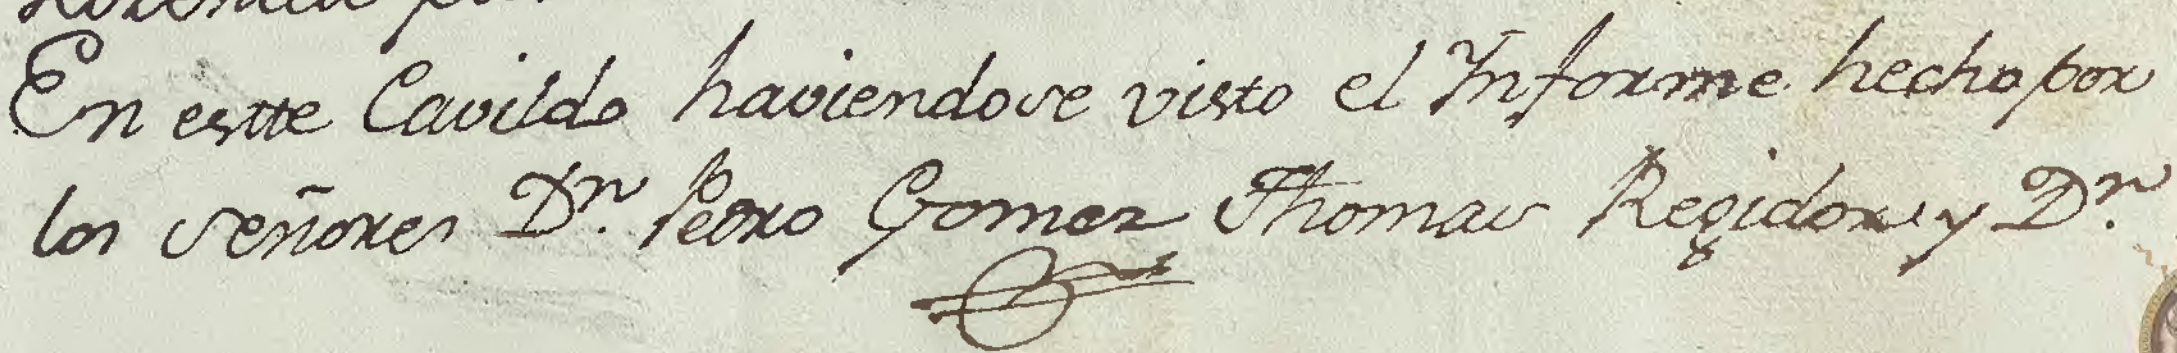 En estte Cavildo haviendose visto el Informe hecho por
los señores Dn. Pedro Gomez Thomas Regidor y Dn.